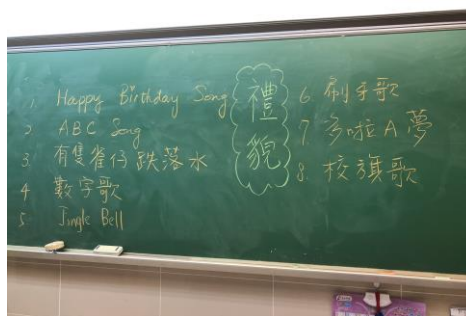 1. Happy Birthday Song
2 ABC Song
3. 有隻雀仔跌落水
4 數字歌
5 Jingle Bell
禮貌
6 刷牙歌
7 多啦A夢
8. 校旗歌